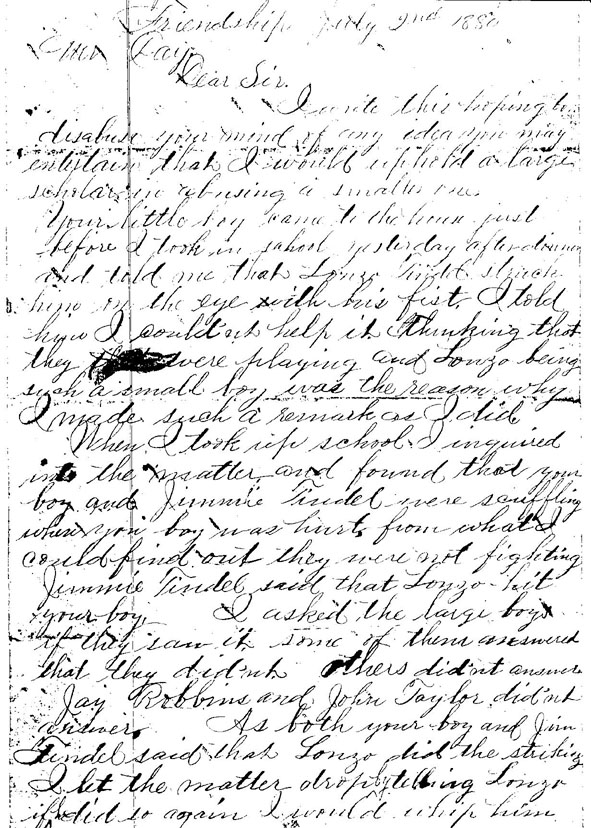 Friendship July 2nd 1880
Mr Jay
Dear Sir.
I write this hoping to
disabuse your mind of any idea you may
entertain that I would uphold a large
scholar in abusing a smaller one.
Your little boy came to the house just
before I took in school yesterday afternoon
and told me that Lonzo Tindel struck
him in the eye with his fist. I told
him I couldn't help it thinking that
they were playing and Lonzo being
such a small boy was the reason why
I made such a remark as I did
When I took up school I inquired
into the matter and found that your
boy and Jimmie Tindel were scuffling
when you boy was hurt, from what I
could find out they were not fighting
Jimmie Tindel said that Lonzo hit
your boy. I asked the large boys
if they saw it some of them answered
that they didn't others didn't answer
Jay Robbins and John Taylor didn't
answer. As both your boy and Jim
Tindel said that Lonzo did the striking
I let the matter drop telling Lonzo
if did so again I would whip him